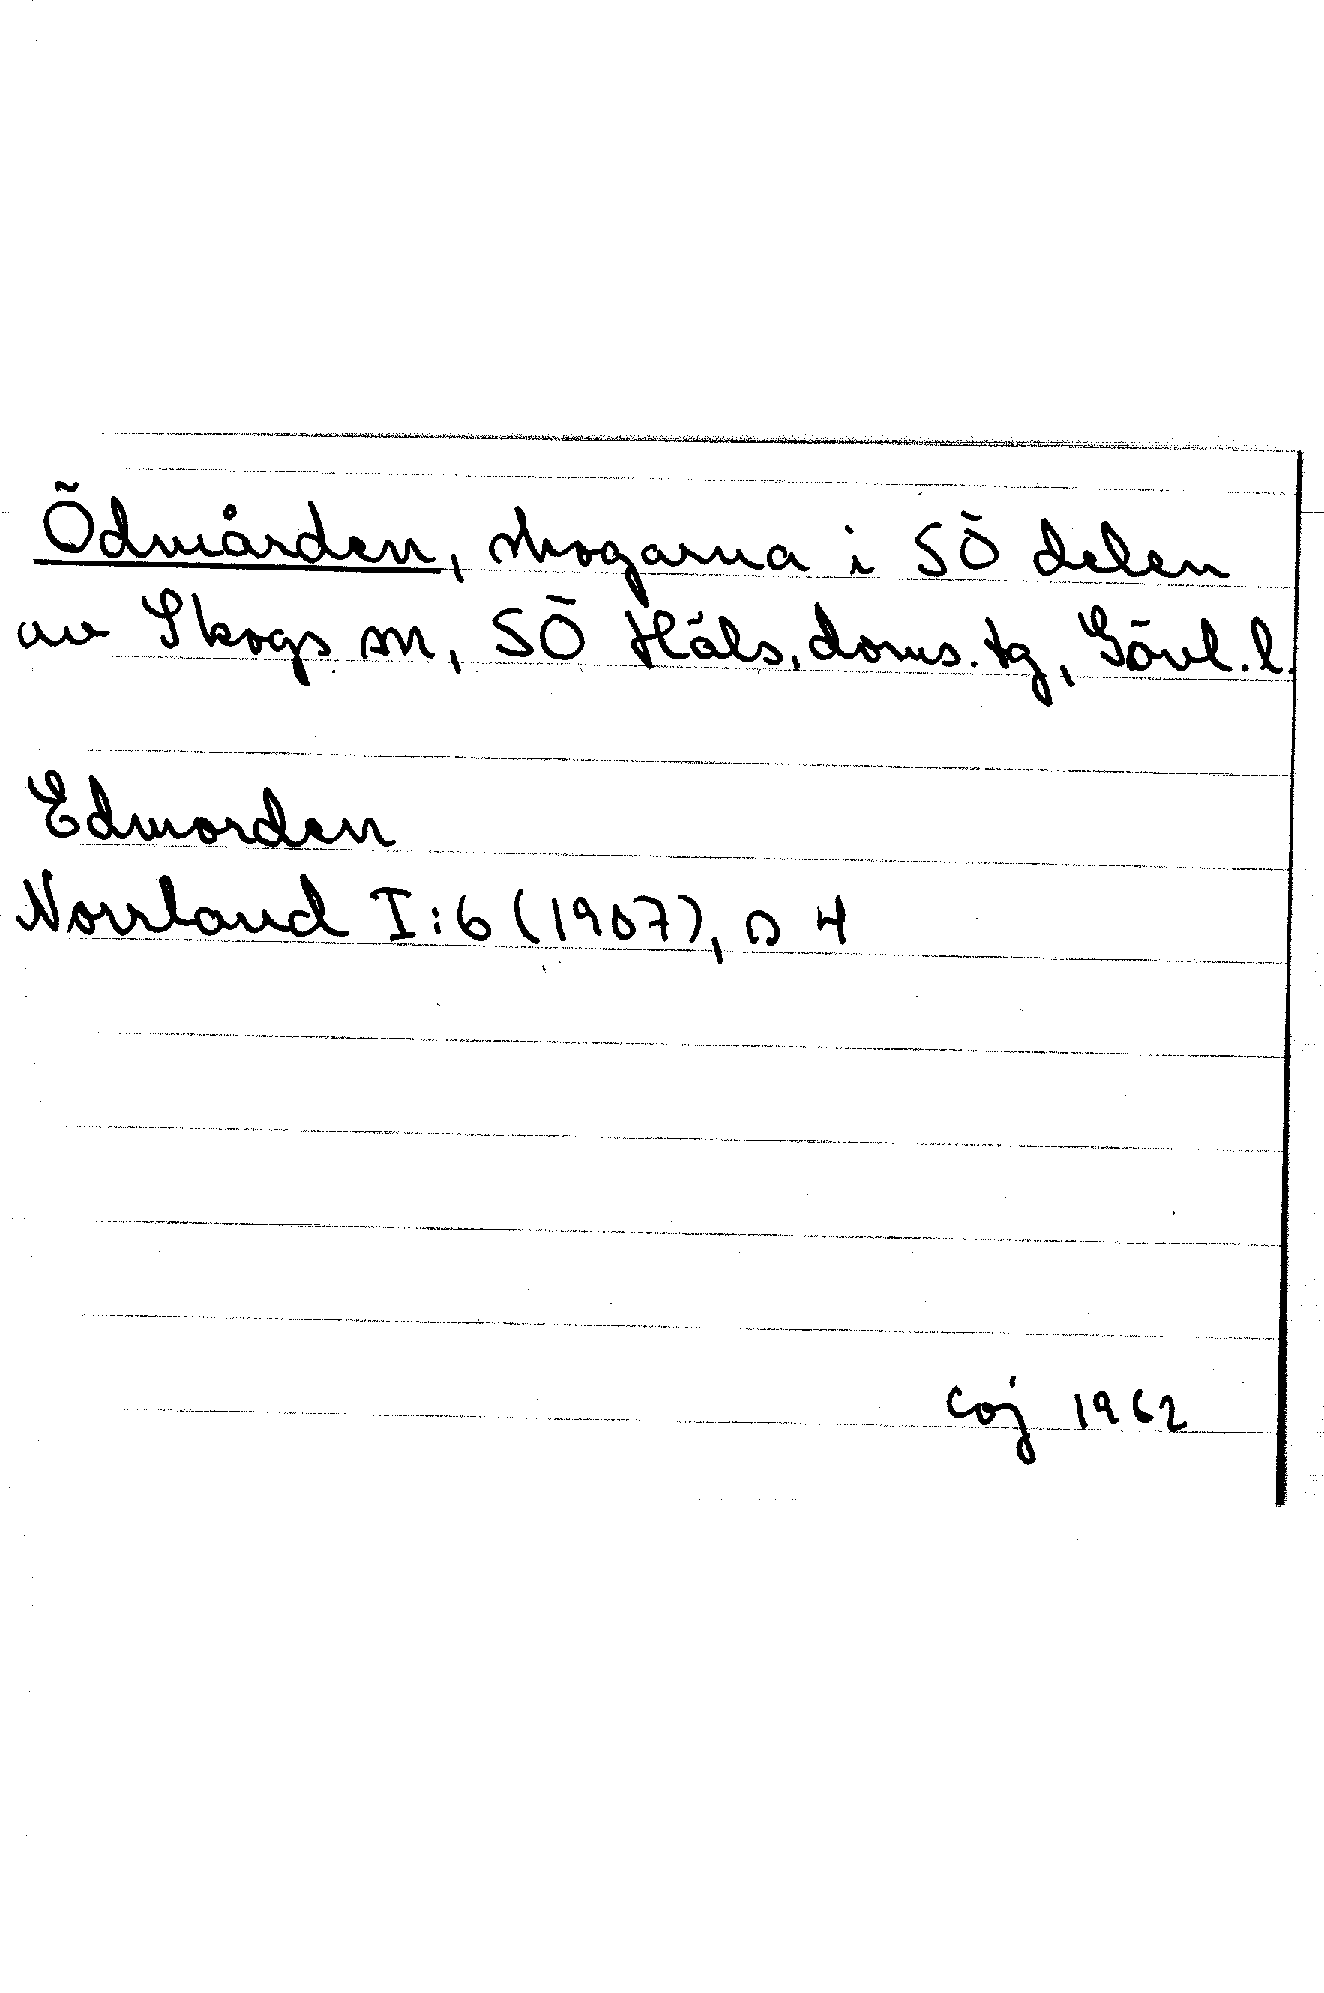 Ödmården, skogarna i SÖ delen
av Skogs sn, SÖ Häls. doms. tg, Gävl. l.
Edmorden
Norrland I:6 (1907), s 4
coj 1962